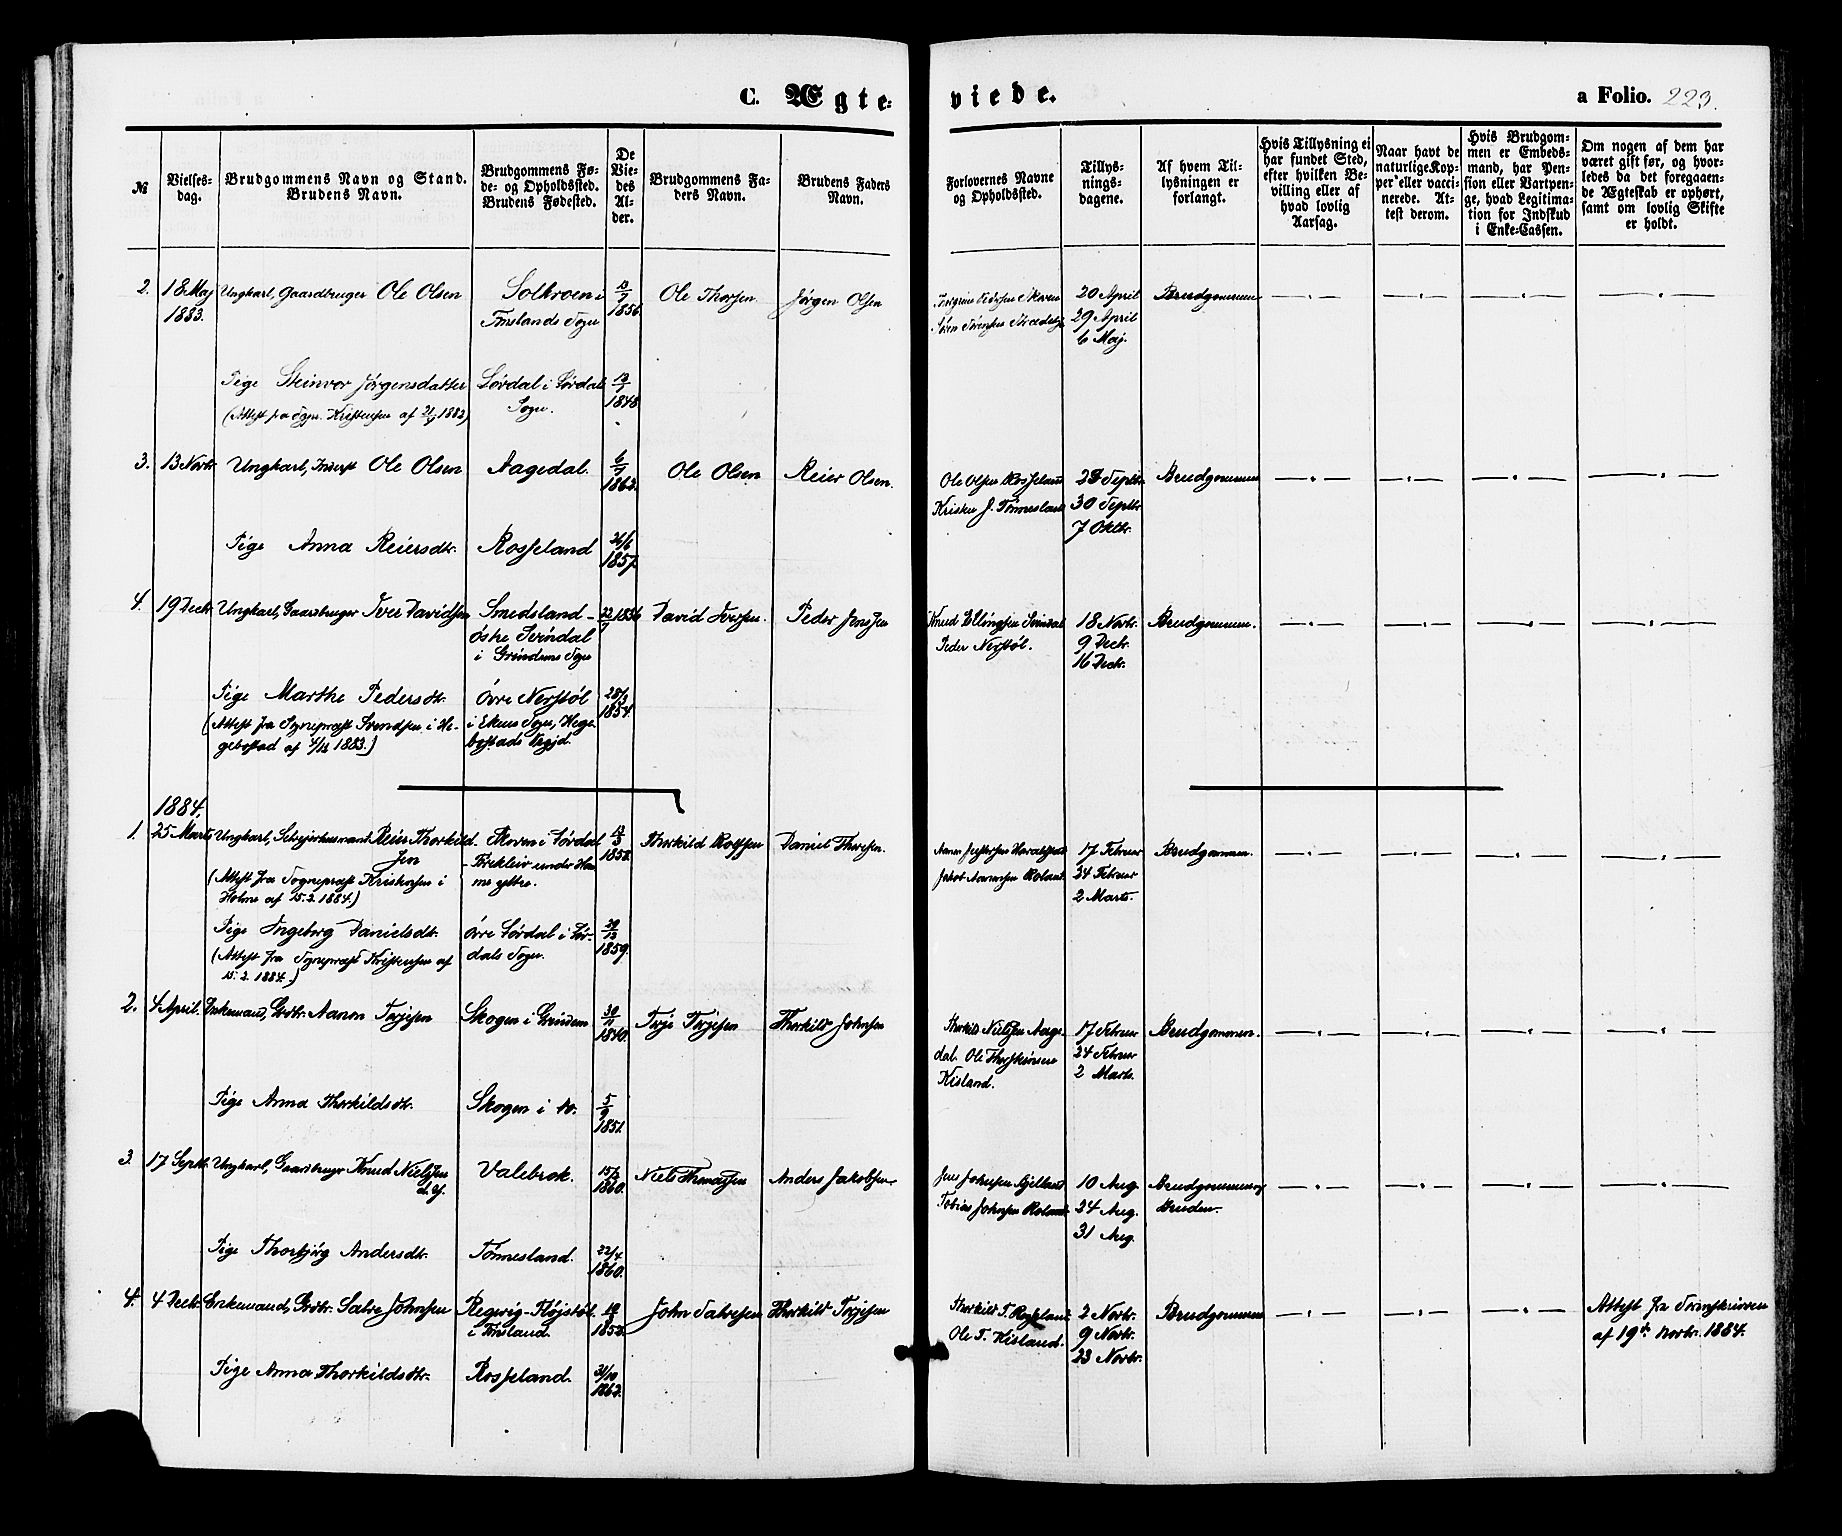 C. Ægte-
viede.
a Folio. 223.
№
Vielses-
dag.
Brudgommens Navn og Stand.
Brudens Navn.
Brudgommens Fø-
de- og Opholdssted.
Brudens Fødested.
De
Vie-
des
Al-
der.
Brudgommens Fa-
ders Navn.
Brudens Faders
Navn.
Forlovernes Navne
og Opholdssted.
Tillys-
nings-
dagene.
Af hvem Til-
lysningen er
forlangt.
Hvis Tillysning ei
har fundet Sted,
efter hvilken Be-
villing eller af
hvad lovlig
Aarsag.
Naar havt de
naturlige Kop-
per eller vacci-
nerede. At-
test derom.
Hvis Brudgom-
men er Embeds-
mand, har Pen-
sion eller Vartpen-
ge, hvad Legitima-
tion for Indskud
i Enke-Cassen.
Om nogen af dem har
været gift før, og hvor-
ledes da det foregaaen-
de Ægteskab er ophørt,
samt om lovlig Skifte
er holdt.
2.
18 Maj
1883.
Ungkarl, Gaardbruger Ole Olsen
i
Finslands Sogn
1856
Ole Thorsen
Jørgen Olsen
20 April
29 April
6 Maj.
Brudgommen
Pige Steinvor Jørgensdatter
(Attest fra Sgpr. Kristensen af 1883)
Lørdal i Lørdal
Sogn.
1848
3.
13 Novbr
Ungkarl, Inderst Ole Olsen
Aagedal.
6/7
1862.
Ole Olsen
Reier Olsen.
Ole Olsen Rosseland
23 Septbr.
30 Septbr
7 Oktbr.
Brudgommen
Pige Anna Reiersdtr.
Rosseland
26/6
1857.
4.
19 Decbr
Ungkarl, Gaardbruger Iver Davidsen
Smedsland -
østre Svindal
i Grindems Sogn
1856
David Iversen.
Peder Jenssen
Knud Ellingsen Svindal
Peder Nerstøl.
18 Novbr.
9 Decbr.
16 Decbr.
Brudgommen.
Pige Marthe Pedersdtr.
(Attest fra Sognepræst Svendsen i He-
gebostad af 1883.)
øvre Nerstøl
i Ekens Sogn, Hege-
bostads Prgjd.
28/3
1854.
1884.
1.
25 Marts
Ungkarl, Reier Thorkild-
sen
(Attest fra Sognepræst Kristensen i
Holme af 15.2.1884.)
Skoven i Lørdal
1858.
Thorkild Rolfsen
Daniel Thorsen.
17 Februar
24 Februar
2 Marts.
Brudgommen.
Pige Ingeborg Danielsdtr.
(Attest fra Sognepræst Kristensen af
15.2.1884.)
øvre Lørdal i Lør-
dals Sogn.
1859.
2.
4 April.
Enkemand, Grdbr. Aanen Terjesen
Skogen i Grindem
30/11
1840.
Terje Terjesen
Thorkild Johnsen
Thorkild Nielssen Aage-
dal. Ole Thorkildsen
Kisland.
17 Februar
24 Februar
2 Marts.
Brudgommen.
Pige Anna Thorkildsdtr.
Skogen i do.
5/9
1851.
3.
17 Septbr.
Ungkarl, Gaardbruger Knud Nielssen
d. y.
Valebrok.
15/2
1860.
Niels Thomassen
Anders Jakobsen
Jens Johnsen
Tobias Johnsen
10 Aug.
24 Aug.
31 Aug.
Brudgommen og
Bruden.
Pige Thorbjørg Andersdtr.
Tønnesland.
22/4
1860.
4.
4 Decbr.
Enkemand, Grdbr. Salve Johnsen
Regevig-Fløjstøl
i Finsland.
1852.
John Salvesen
Thorkild Terjesen
Thorkild T. Røssland.
Ole T. Kisland.
2 Novbr.
9 Novbr.
23 Novbr.
Brudgommen
Attest fra Sorenskriveren
af 19de Novbr. 1884.
Pige Anna Thorkildsdtr.
Rosseland.
31/10
1862.